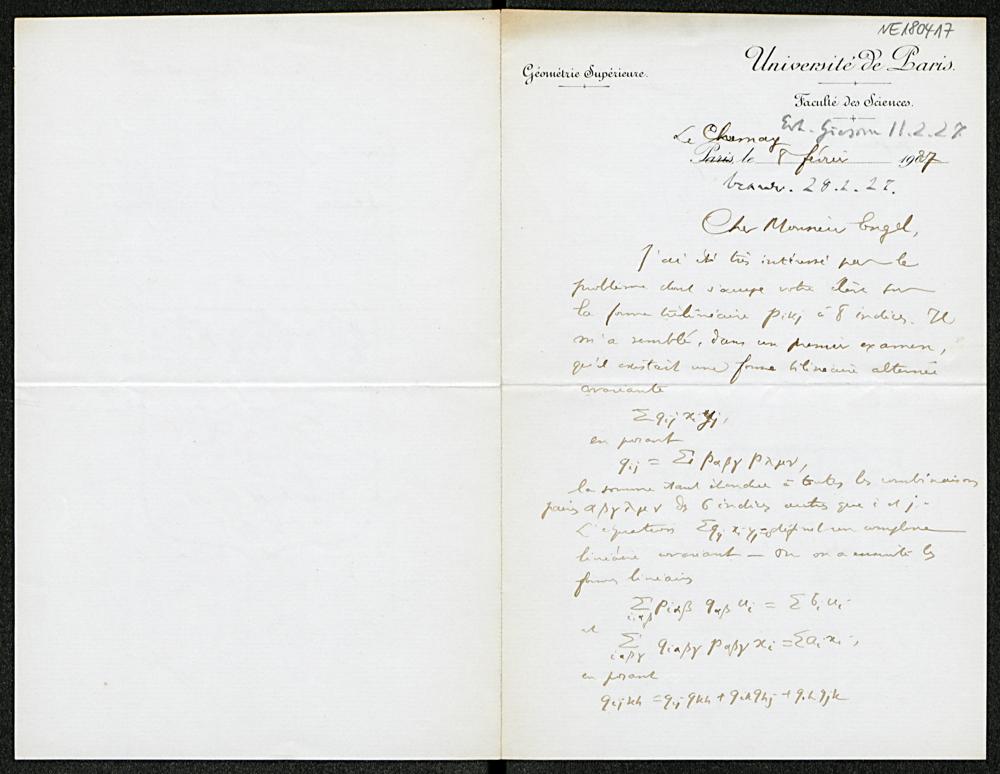 NE180417
Université de Paris.
Géométrie Supérieure.
Faculté des Sciences.
Erh. Giessen 11.2.27.
Le Chesnay
Paris, le 8 février 1927
beantw. 28.2.27.
Cher Monsieur Engel,
J'ai été très intéressé par le
problème dont s'occupe votre élève sur
la forme trilinéaire pikj à 8 indices. Il
m'a semblé, dans un premier examen,
qu'il existait une forme bilinéaire alternée
covariante
Σ qij xi yj,
en posant
qij = Σ pαβγ pλμν,
la somme étant étendue à toutes les combinaisons
paires αβγλμν des 6 indices autres que i et j.
L'équation Σqij xi yj = 0 définit un complexe
linéaire covariant — On en a ensuite les
formes linéaires
Σ piαβ qαβ ui = Σ bi ui
i,α,β
et
Σ qiαβγ pαβγ xi = Σ ai xi,
iαβγ
en posant
qijkh = qij qkh + qik qhj + qih qjk